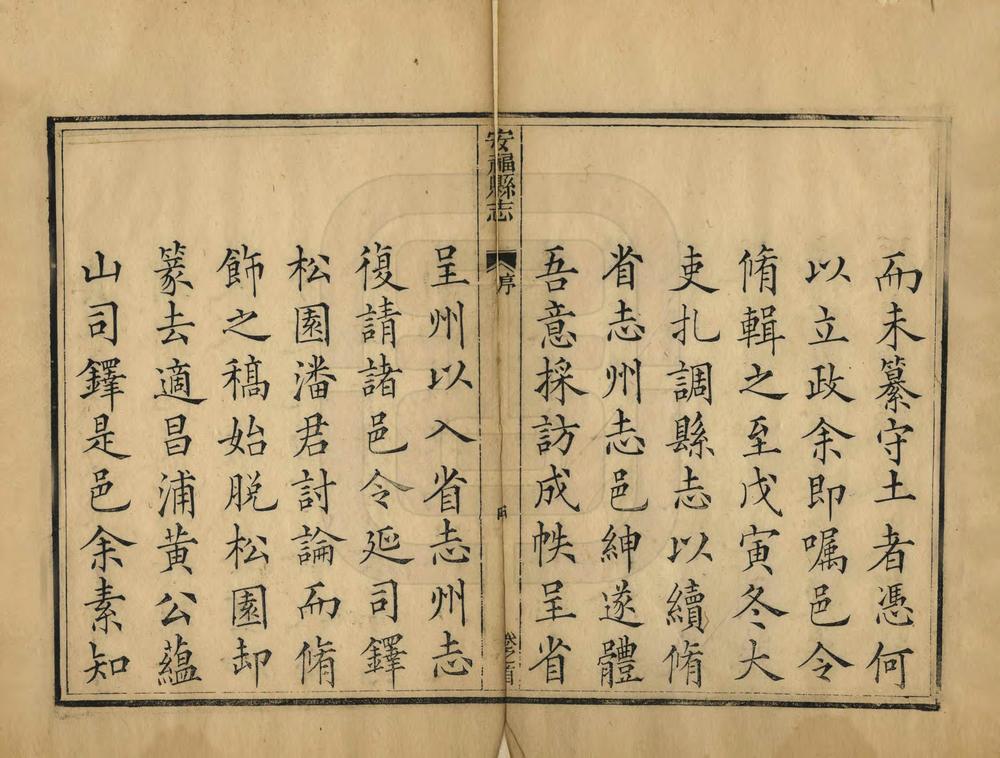 而未纂守土者憑何
以立政余即嘱邑令
脩輯之至戊寅冬大
吏扎調縣志以續脩
省志州志邑紳遂體
吾意採訪成帙呈省
安福縣志
序
卷之首
呈州以入省志州志
復請諸邑令延司鐸
松園潘君討論而脩
飾之稿始脱松園卸
篆去適昌浦黄公蘊
山司鐸是邑余素知